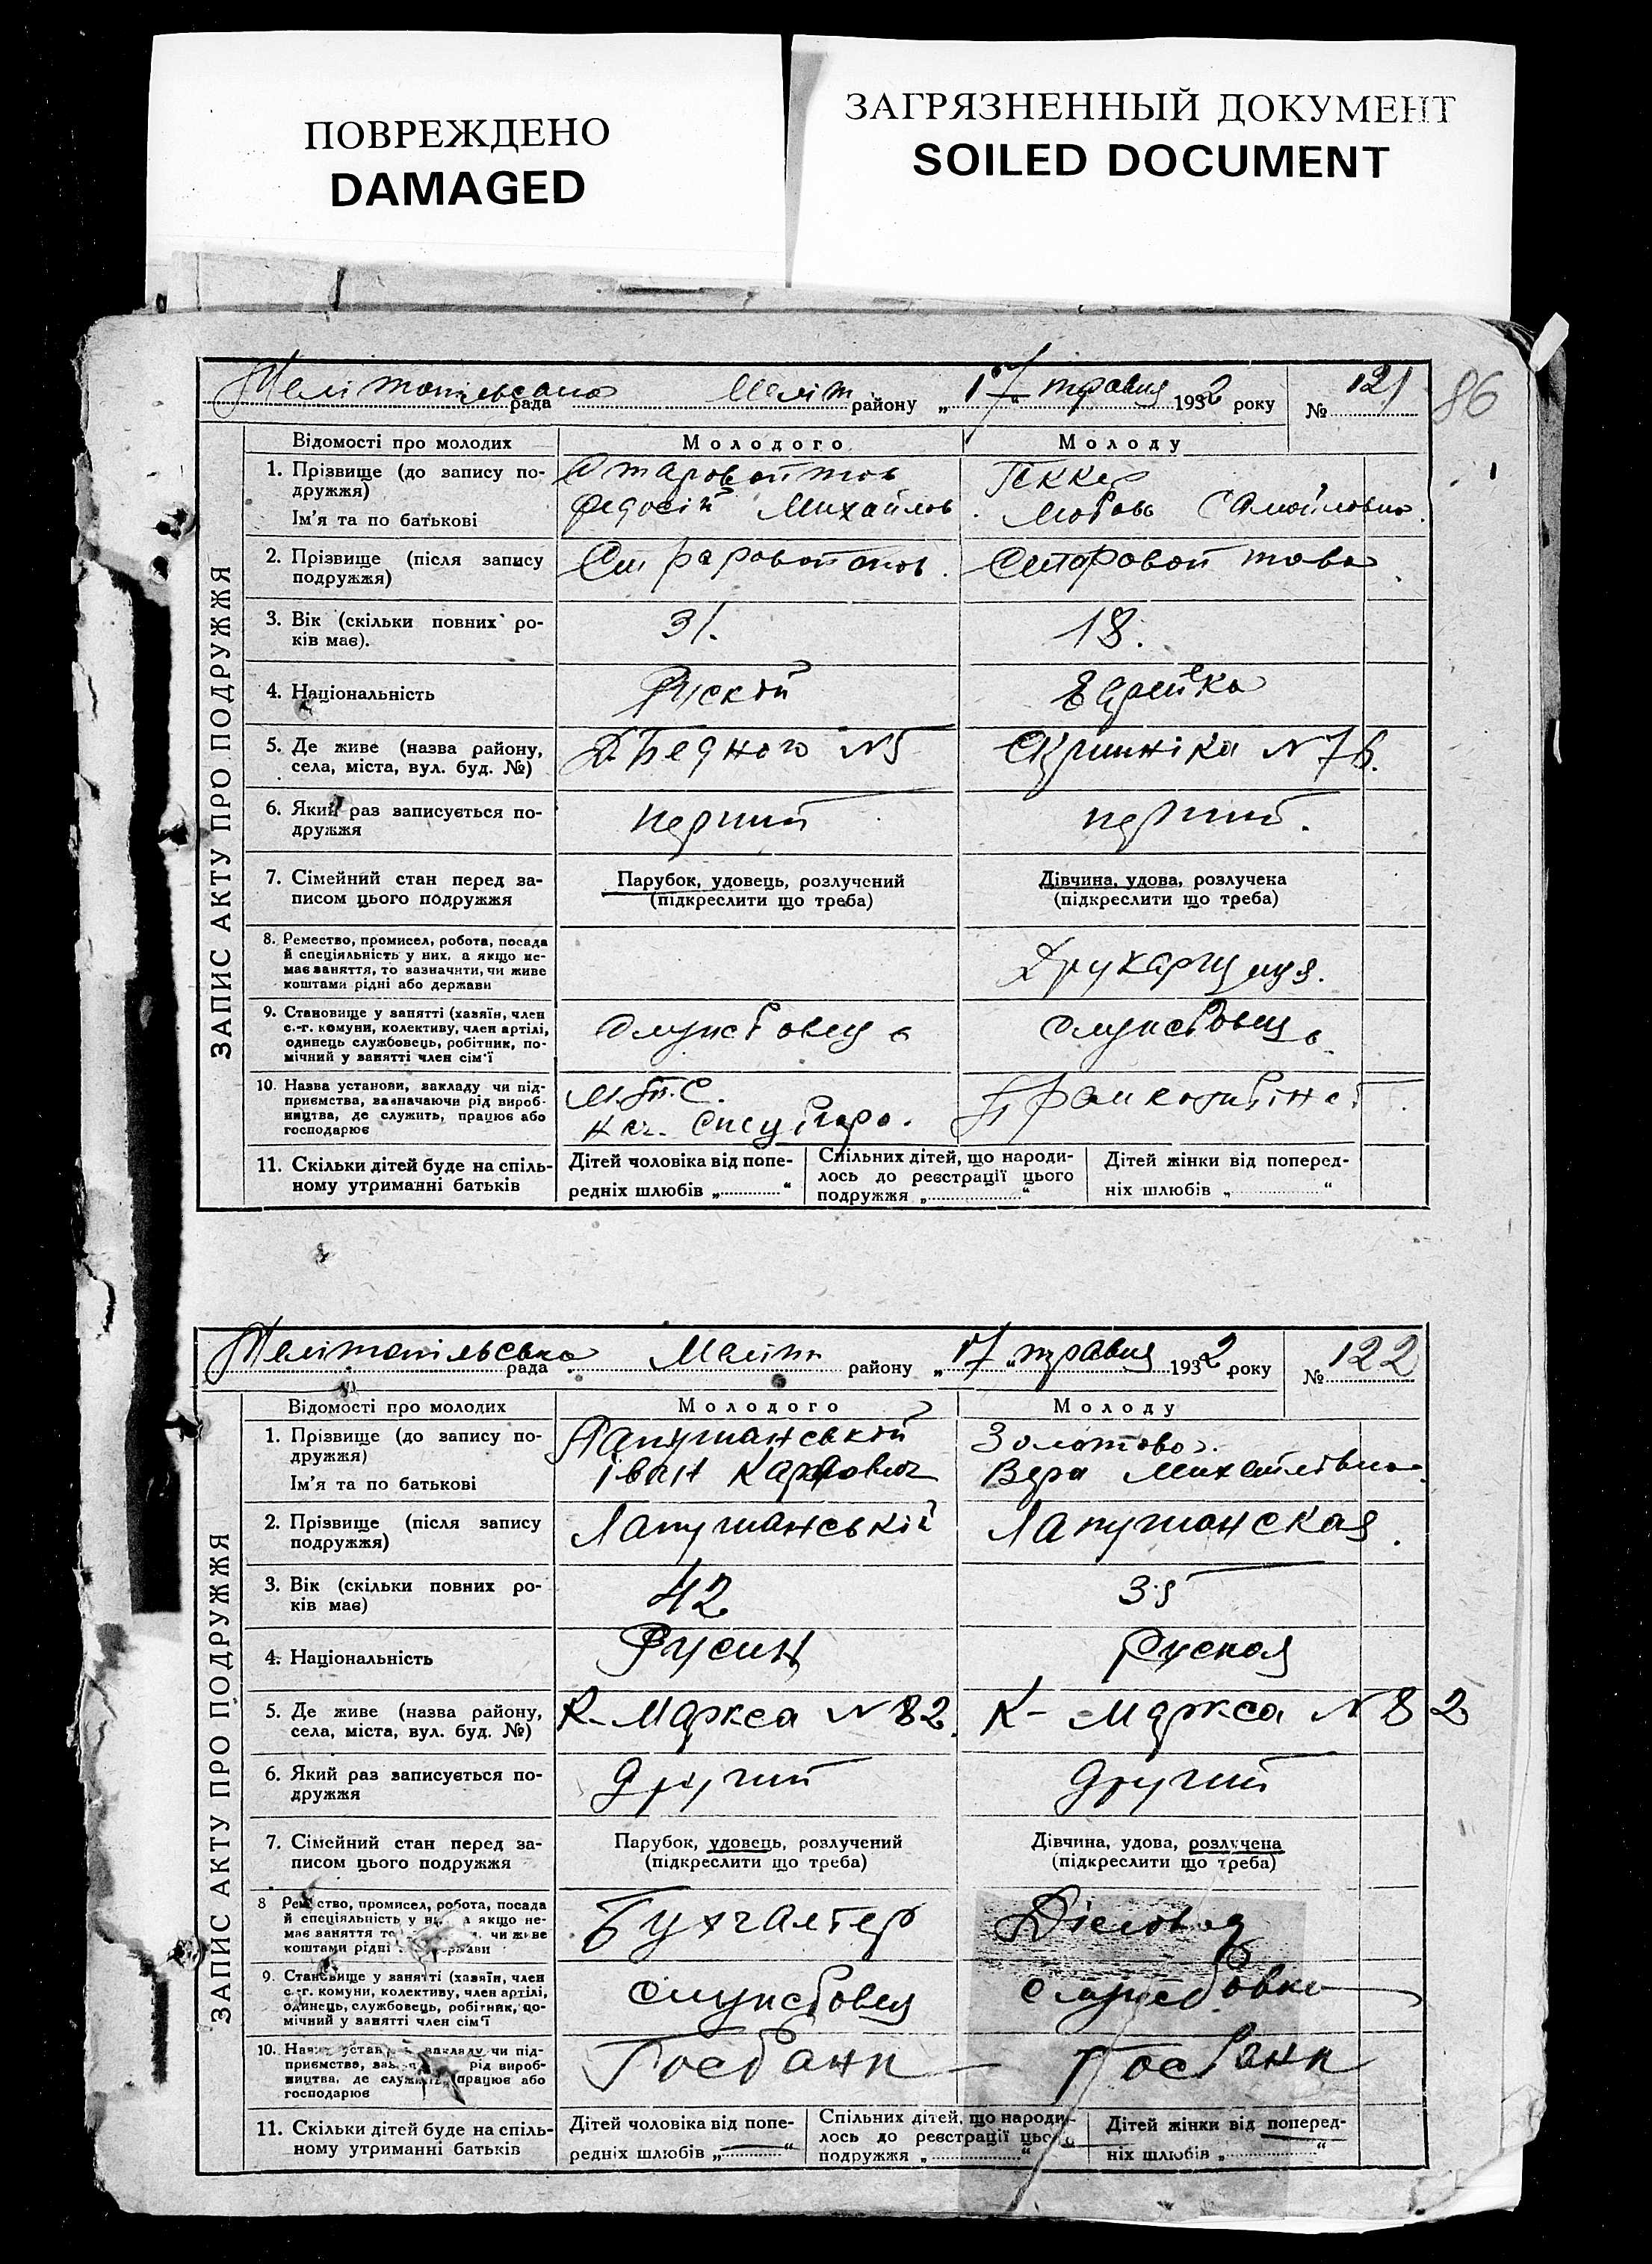 ПОВРЕЖДЕНО
DAMAGED
ЗАГРЯЗНЕННЫЙ ДОКУМЕНТ
SOILED DOCUMENT
86
ЗАПИС АКТУ ПРО ПОДРУЖЖЯ
рада Меліт району „17„ травня 1932 року № 121
Відомості про молодих Молодого Молоду
1. Прізвище (до запису по-
дружжя)
Ім'я та по батькові
Старовойтов
Федосій Михайлов
Геккер
Любовь Самойловна
2. Прізвище (після запису
подружжя)
Старовойтова
3. Вік (скільки повних ро-
ків має).
31.
18.
4. Національність
Рускій
Еврейка
5. Де живе (назва району,
села, міста, вул. буд. №)
Д. Бедного N5
Скрипніка N 76.
6. Який раз записується по-
дружжя
перший
перший.
7. Сімейний стан перед за-
писом цього подружжя
Парубок, удовець, розлучений
(підкреслити що треба)
Дівчина, удова, розлучена
(підкреслити що треба)
8. Ремество, промисел, робота, посада
й спеціяльність у них, а якщо не-
має заняття, то зазначити, чи живе
коштами рідні або держави
9. Становище у занятті (хазяїн, член
с.-г. комуни, колективу, член артілі,
одинець службовець, робітник, по-
мічний у занятті член сім'ї
службовець
службовець
10. Назва установи, закладу чи під-
приємства, зазначаючи рід вироб-
ництва, де служить, працює або
господарює
11. Скільки дітей буде на спіль-
ному утриманні батьків
Дітей чоловіка від попе-
редніх шлюбів „ “
Спільних дітей, що народи-
лось до реєстрації цього
подружжя „ “
Дітей жінки від поперед-
ніх шлюбів „ “
ЗАПИС АКТУ ПРО ПОДРУЖЖЯ
Мелітопільська рада Меліт району „17„ травня 1932 року № 122
Відомості про молодих Молодого Молоду
1. Прізвище (до запису по-
дружжя)
Ім'я та по батькові
Лапушанській
Іван Карпович
Золотова
Вера Михайлівна
2. Прізвище (після запису
подружжя)
Лапушанській
Лапушанская.
3. Вік (скільки повних ро-
ків має)
42
35
4. Національність
Русин
Руская
5. Де живе (назва району,
села, міста, вул. буд. №)
К-Маркса N 82.
К- Маркса N 82
6. Який раз записується по-
дружжя
другий
другий
7. Сімейний стан перед за-
писом цього подружжя
Парубок, удовець, розлучений
(підкреслити що треба)
Дівчина, удова, розлучена
(підкреслити що треба)
8 Ремество, промисел, робота, посада
й спеціяльність у якщо не-
має заняття то чи живе
коштами рідні держави
Бухгалтер
Діловод
9. Становище у занятті (хазяїн, член
с.-г. комуни, колективу, член артілі,
одинець, службовець, робітник, по-
мічний у занятті член сім'ї
службовец
службовка
10. Назва установи закладу чи під-
приємства, рід вироб-
ництва, де служить, працює або
господарює
Госбанк
Госбанк
11. Скільки дітей буде на спіль-
ному утриманні батьків
Дітей чоловіка від попе-
редніх шлюбів „ “
Спільних дітей, що народи-
лось до реєстрації цього
подружжя „ “
Дітей жінки від поперед-
ніх шлюбів „ “